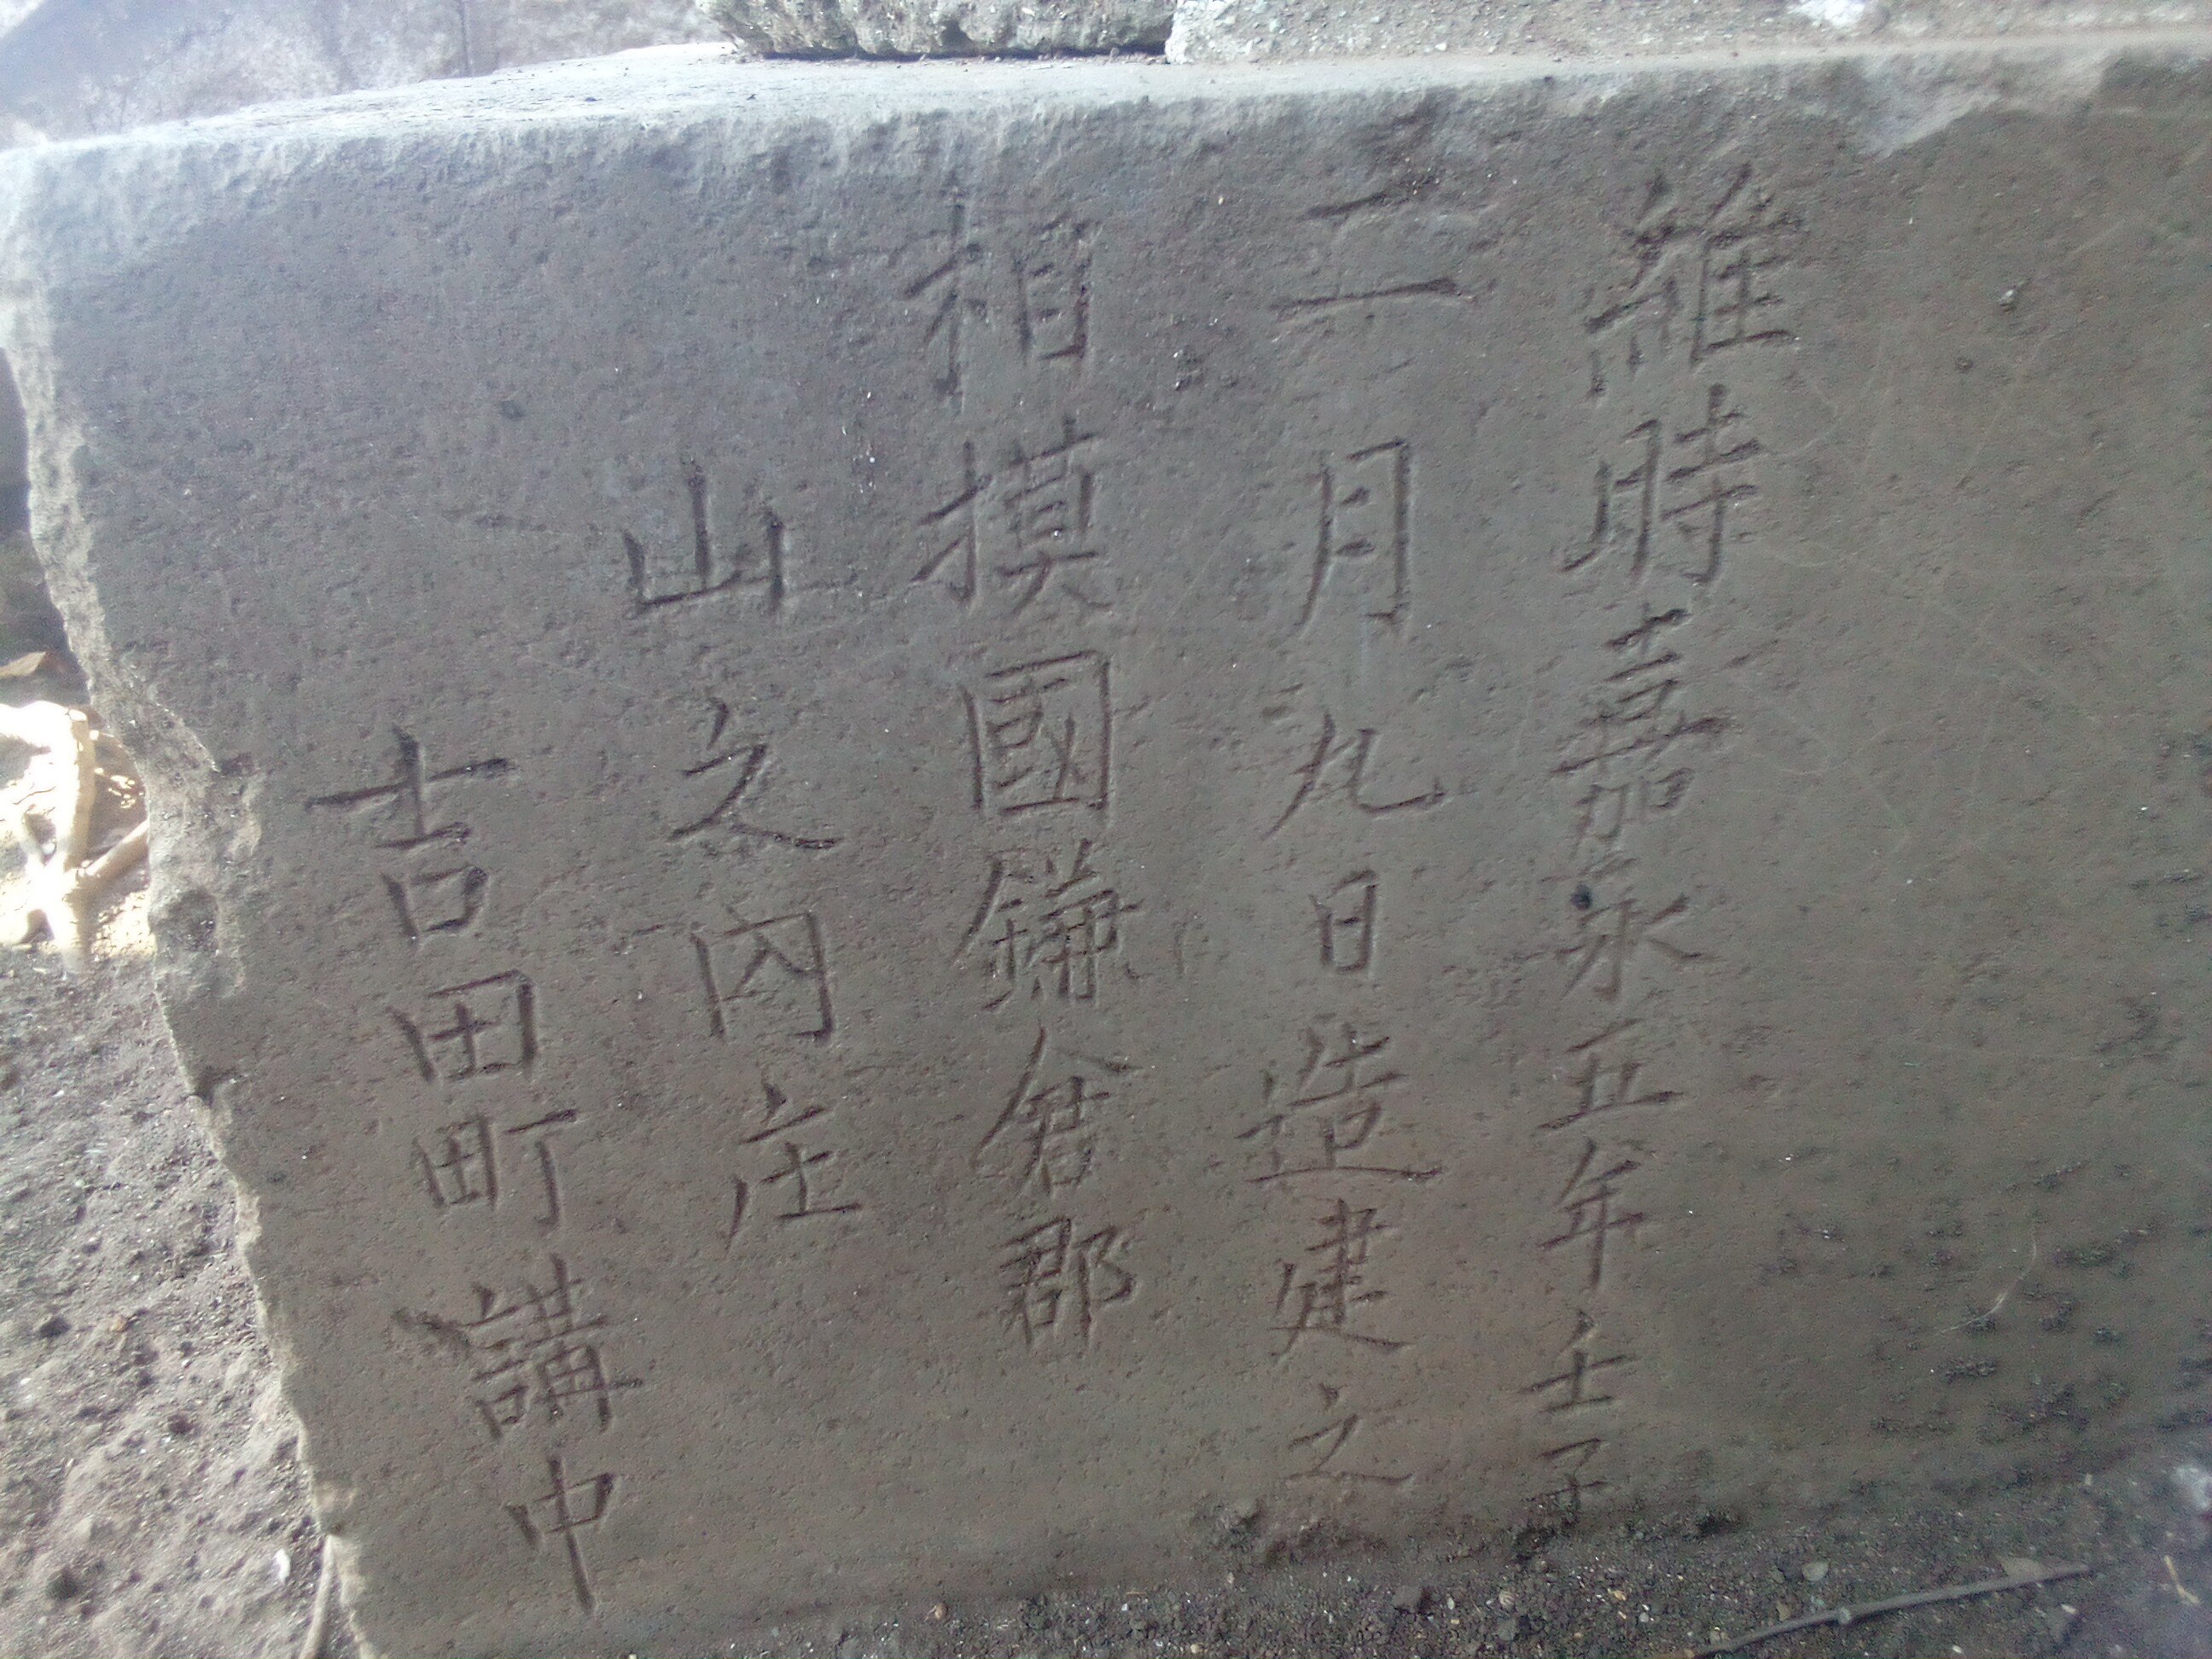 維時嘉永五年壬子
二月九日造建之
相摸國鎌倉郡
山之内庄
吉田町講中